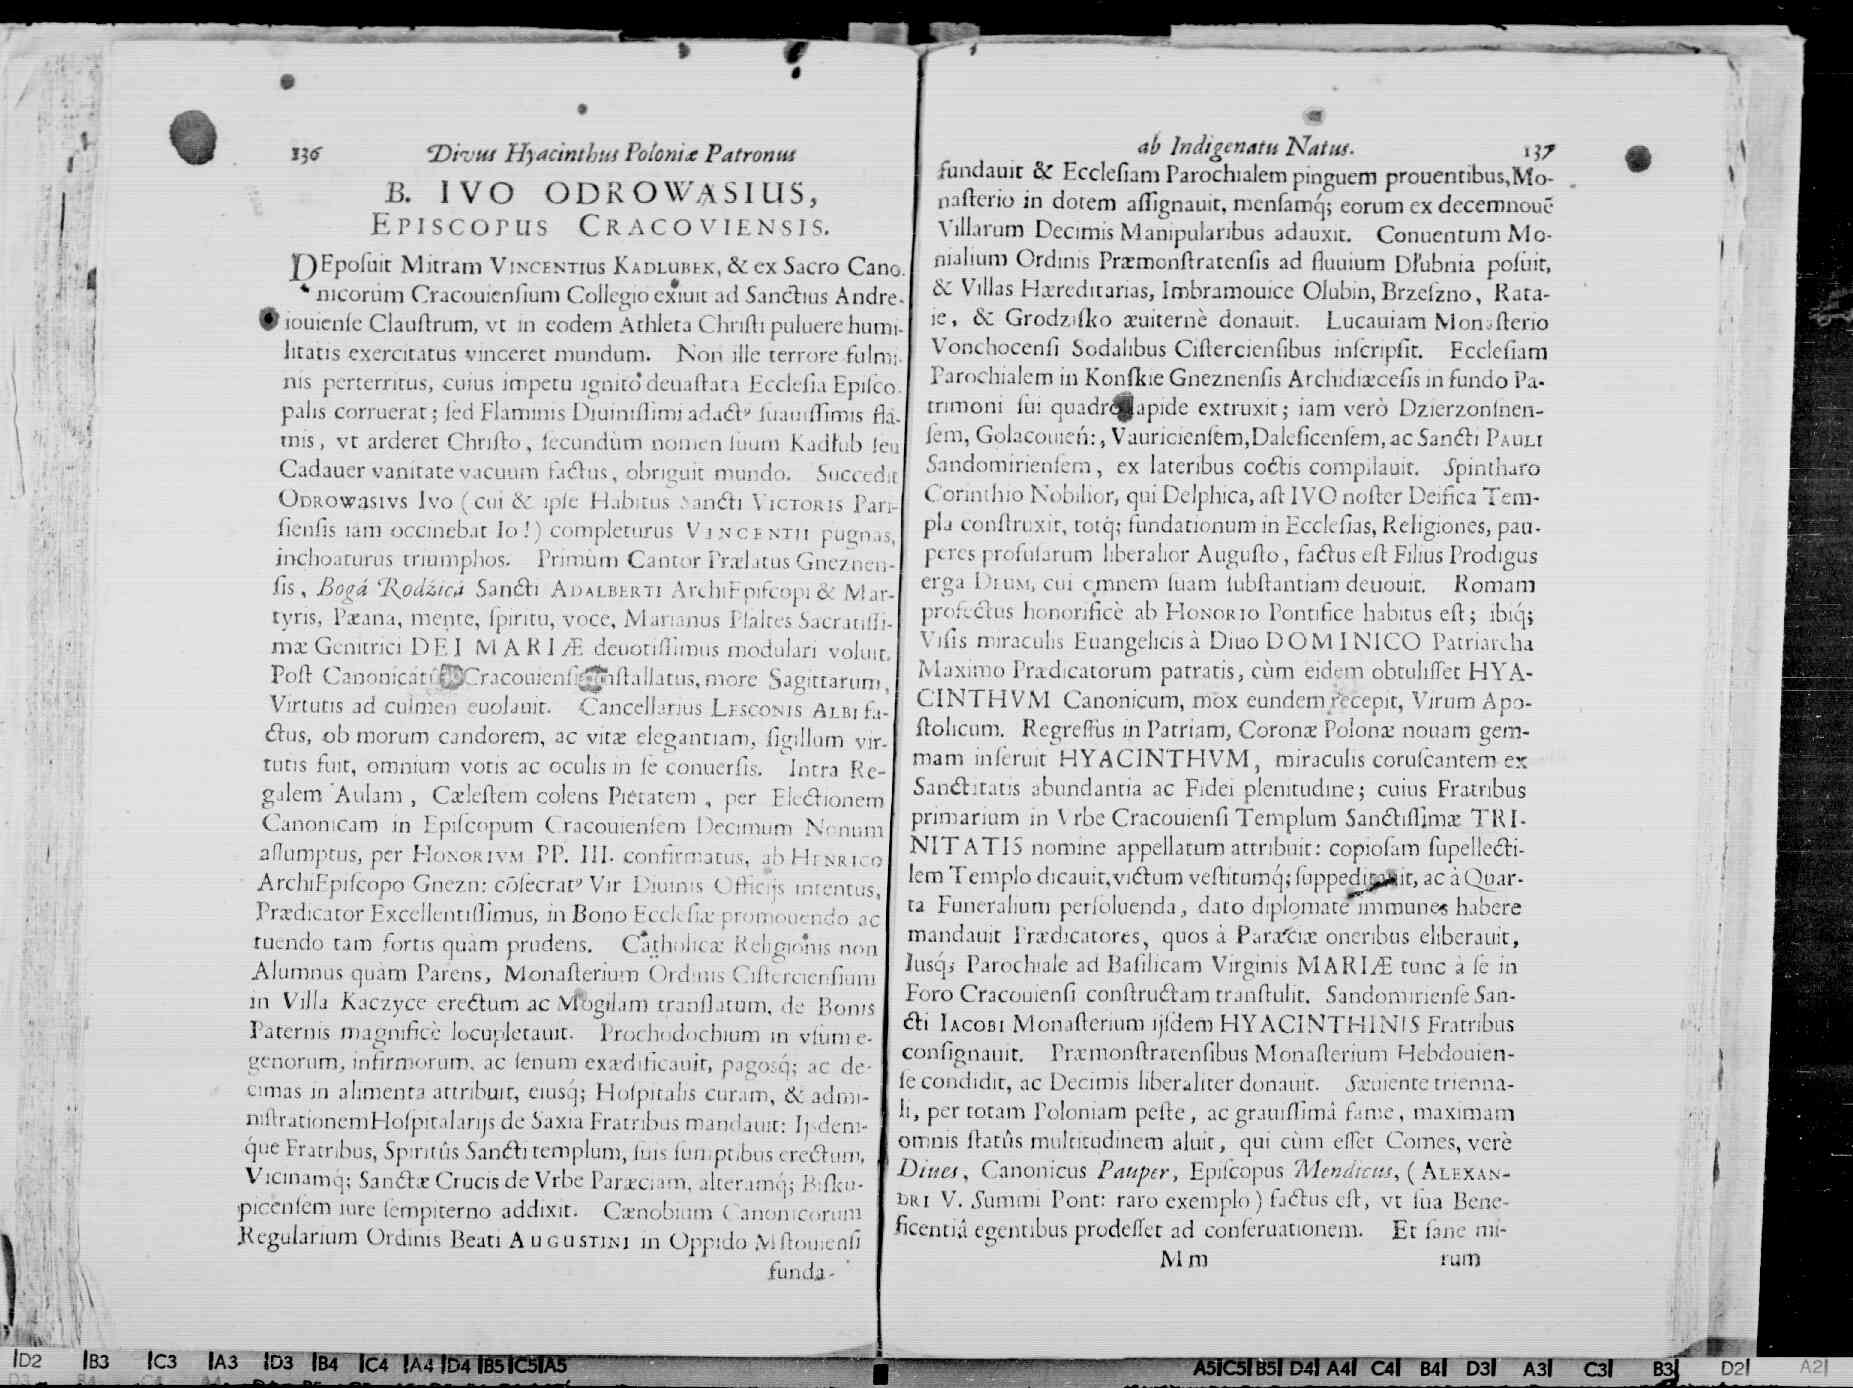 136 Divus Hyacinthus Poloniæ Patronus
B. IVO ODROWASIUS,
EPISCOPUS CRACOVIENSIS.
DEpoſuit Mitram VINCENTIus KADLUBEK, & ex Sacro Cano-
nicorum Cracouienſium Collegio exiuit ad Sanctius Andre-
iouienſe Clauſtrum, vt in eodem Athleta Chriſti puluere humi-
litatis exercitatus vinceret mundum. Non ille terrore fulmi-
nis perterritus, cuius impetu ignito deuaſtata Eccleſia Epiſco-
palis corruerat; ſed Flaminis Diuiniſſimi adactꝰ ſuauiſſimis flã-
mis, vt arderet Chriſto, ſecundùm nomen ſuum Kadłub ſeu
Cadauer vanitate vacuum factus, obriguit mundo. Succedit
ODROWasIVS Ivo (cui & ipſe Habitus Sancti VICTORIS Pari-
ſienſis iam occinebat Io!) completurus VINCENTII pugnas,
inchoaturus triumphos. Primùm Cantor Prælatus Gneznen-
ſis, Bogá Rodźicá Sancti ADALBERTI ArchiEpiſcopi & Mar-
tyris, Pæana, mente, ſpiritu, voce, Marianus Pſaltes Sacratiſſi-
mæ Genitrici DEI MARIÆ deuotiſſimus modulari voluit.
Poſt Canonicatũ Cracouienſi inſtallatus, more Sagittarum,
Virtutis ad culmen euolauit. Cancellarius LESCONIS ALBI fa-
ctus, ob morum candorem, ac vitæ elegantiam, ſigillum vir-
tutis fuit, omnium votis ac oculis in ſe conuerſis. Intra Re-
galem Aulam, Cæleſtem colens Pietatem, per Electionem
Canonicam in Epiſcopum Cracouienſem Decimum Nonum
aſſumptus, per HONORIVM PP. III. confirmatus, ab HENRICO
ArchiEpiſcopo Gnezn: cõſecratꝰ Vir Diuinis Officijs intentus,
Prædicator Excellentiſſimus, in Bono Eccleſiæ promouendo ac
tuendo tam fortis quàm prudens. Catholicæ Religionis non
Alumnus quàm Parens, Monaſterium Ordinis Ciſtercienſium
in Villa Kaczyce erectum ac Mogilam tranſlatum, de Bonis
Paternis magnificè locupletauit. Prochodochium in vſum e-
genorum, infirmorum, ac ſenum exædificauit, pagosq́; ac de-
cimas in alimenta attribuit, eiusq́; Hoſpitalis curam, & admi-
niſtrationem Hoſpitalarijs de Saxia Fratribus mandauit: Ijsdem-
q́ue Fratribus, Spiritûs Sancti templum, ſuis ſumptibus erectum,
Vicinamq́; Sanctæ Crucis de Vrbe Paræciam, alteramq́; Biſku-
picenſem iure ſempiterno addixit. Cænobium Canonicorum
Regularium Ordinis Beati AUGUSTINI in Oppido Mſtouienſi
funda-
ab Indigenatu Natus. 137
fundauit & Eccleſiam Parochialem pinguem prouentibus, Mo-
naſterio in dotem aſſignauit, menſamq́; eorum ex decemnouẽ
Villarum Decimis Manipularibus adauxit. Conuentum Mo-
nialium Ordinis Præmonſtratenſis ad fluuium Dłubnia poſuit,
& Villas Hæreditarias, Imbramouice Olubin, Brzeſzno, Rata-
ie, & Grodziſko æuiternè donauit. Lucauiam Monaſterio
Vonchocenſi Sodalibus Ciſtercienſibus inſcripſit. Eccleſiam
Parochialem in Konſkie Gneznenſis Archidiæceſis in fundo Pa-
trimoni ſui quadro lapide extruxit; iam verò Dzierzonſnen-
ſem, Golacouień:, Vauricienſem, Daleſicenſem, ac Sancti PAULI
Sandomirienſem, ex lateribus coctis compilauit. Spintharo
Corinthio Nobilior, qui Delphica, aſt IVO noſter Deifica Tem-
pla conſtruxit, totq́; fundationum in Eccleſias, Religiones, pau-
peres profuſarum liberalior Auguſto, factus eſt Filius Prodigus
erga DEUM, cui omnem ſuam ſubſtantiam deuouit. Romam
profectus honorificè ab HONORIO Pontifice habitus eſt; ibiq́;
Viſis miraculis Euangelicis à Diuo DOMINICO Patriarcha
Maximo Prædicatorum patratis, cùm eidem obtuliſſet HYA-
CINTHVM Canonicum, mox eundem recepit, Virum Apo-
ſtolicum. Regreſſus in Patriam, Coronæ Polonæ nouam gem-
mam inſeruit HYACINTHVM, miraculis coruſcantem ex
Sanctitatis abundantia ac Fidei plenitudine; cuius Fratribus
primarium in Vrbe Cracouienſi Templum Sanctiſſimæ TRI-
NITATIS nomine appellatum attribuit: copioſam ſupellecti-
lem Templo dicauit, victum veſtitumq́; ſuppeditauit, ac à Quar-
ta Funeralium perſoluenda, dato diplomate immunes habere
mandauit Prædicatores, quos à Paræciæ oneribus eliberauit,
Iusq́; Parochiale ad Baſilicam Virginis MARIÆ tunc à ſe in
Foro Cracouienſi conſtructam tranſtulit. Sandomirienſe San-
cti IACOBI Monaſterium ijſdem HYACINTHINIS Fratribus
conſignauit. Præmonſtratenſibus Monaſterium Hebdouien-
ſe condidit, ac Decimis liberaliter donauit. Sæuiente trienna-
li, per totam Poloniam peſte, ac grauiſſimâ fame, maximam
omnis ſtatûs multitudinem aluit, qui cùm eſſet Comes, verè
Diues, Canonicus Pauper, Epiſcopus Mendicus, (ALEXAN-
DRI V. Summi Pont: raro exemplo) factus eſt, vt ſua Bene-
ficentiâ egentibus prodeſſet ad conſeruationem. Et ſane mi-
Mm rum
D2 B3 C3 A3 D3 B4 C4 A4 D4 B5 C5 A5
A5 C5 B5 D4 A4 C4 B4 D3 A3 C3 B3 D2 A2